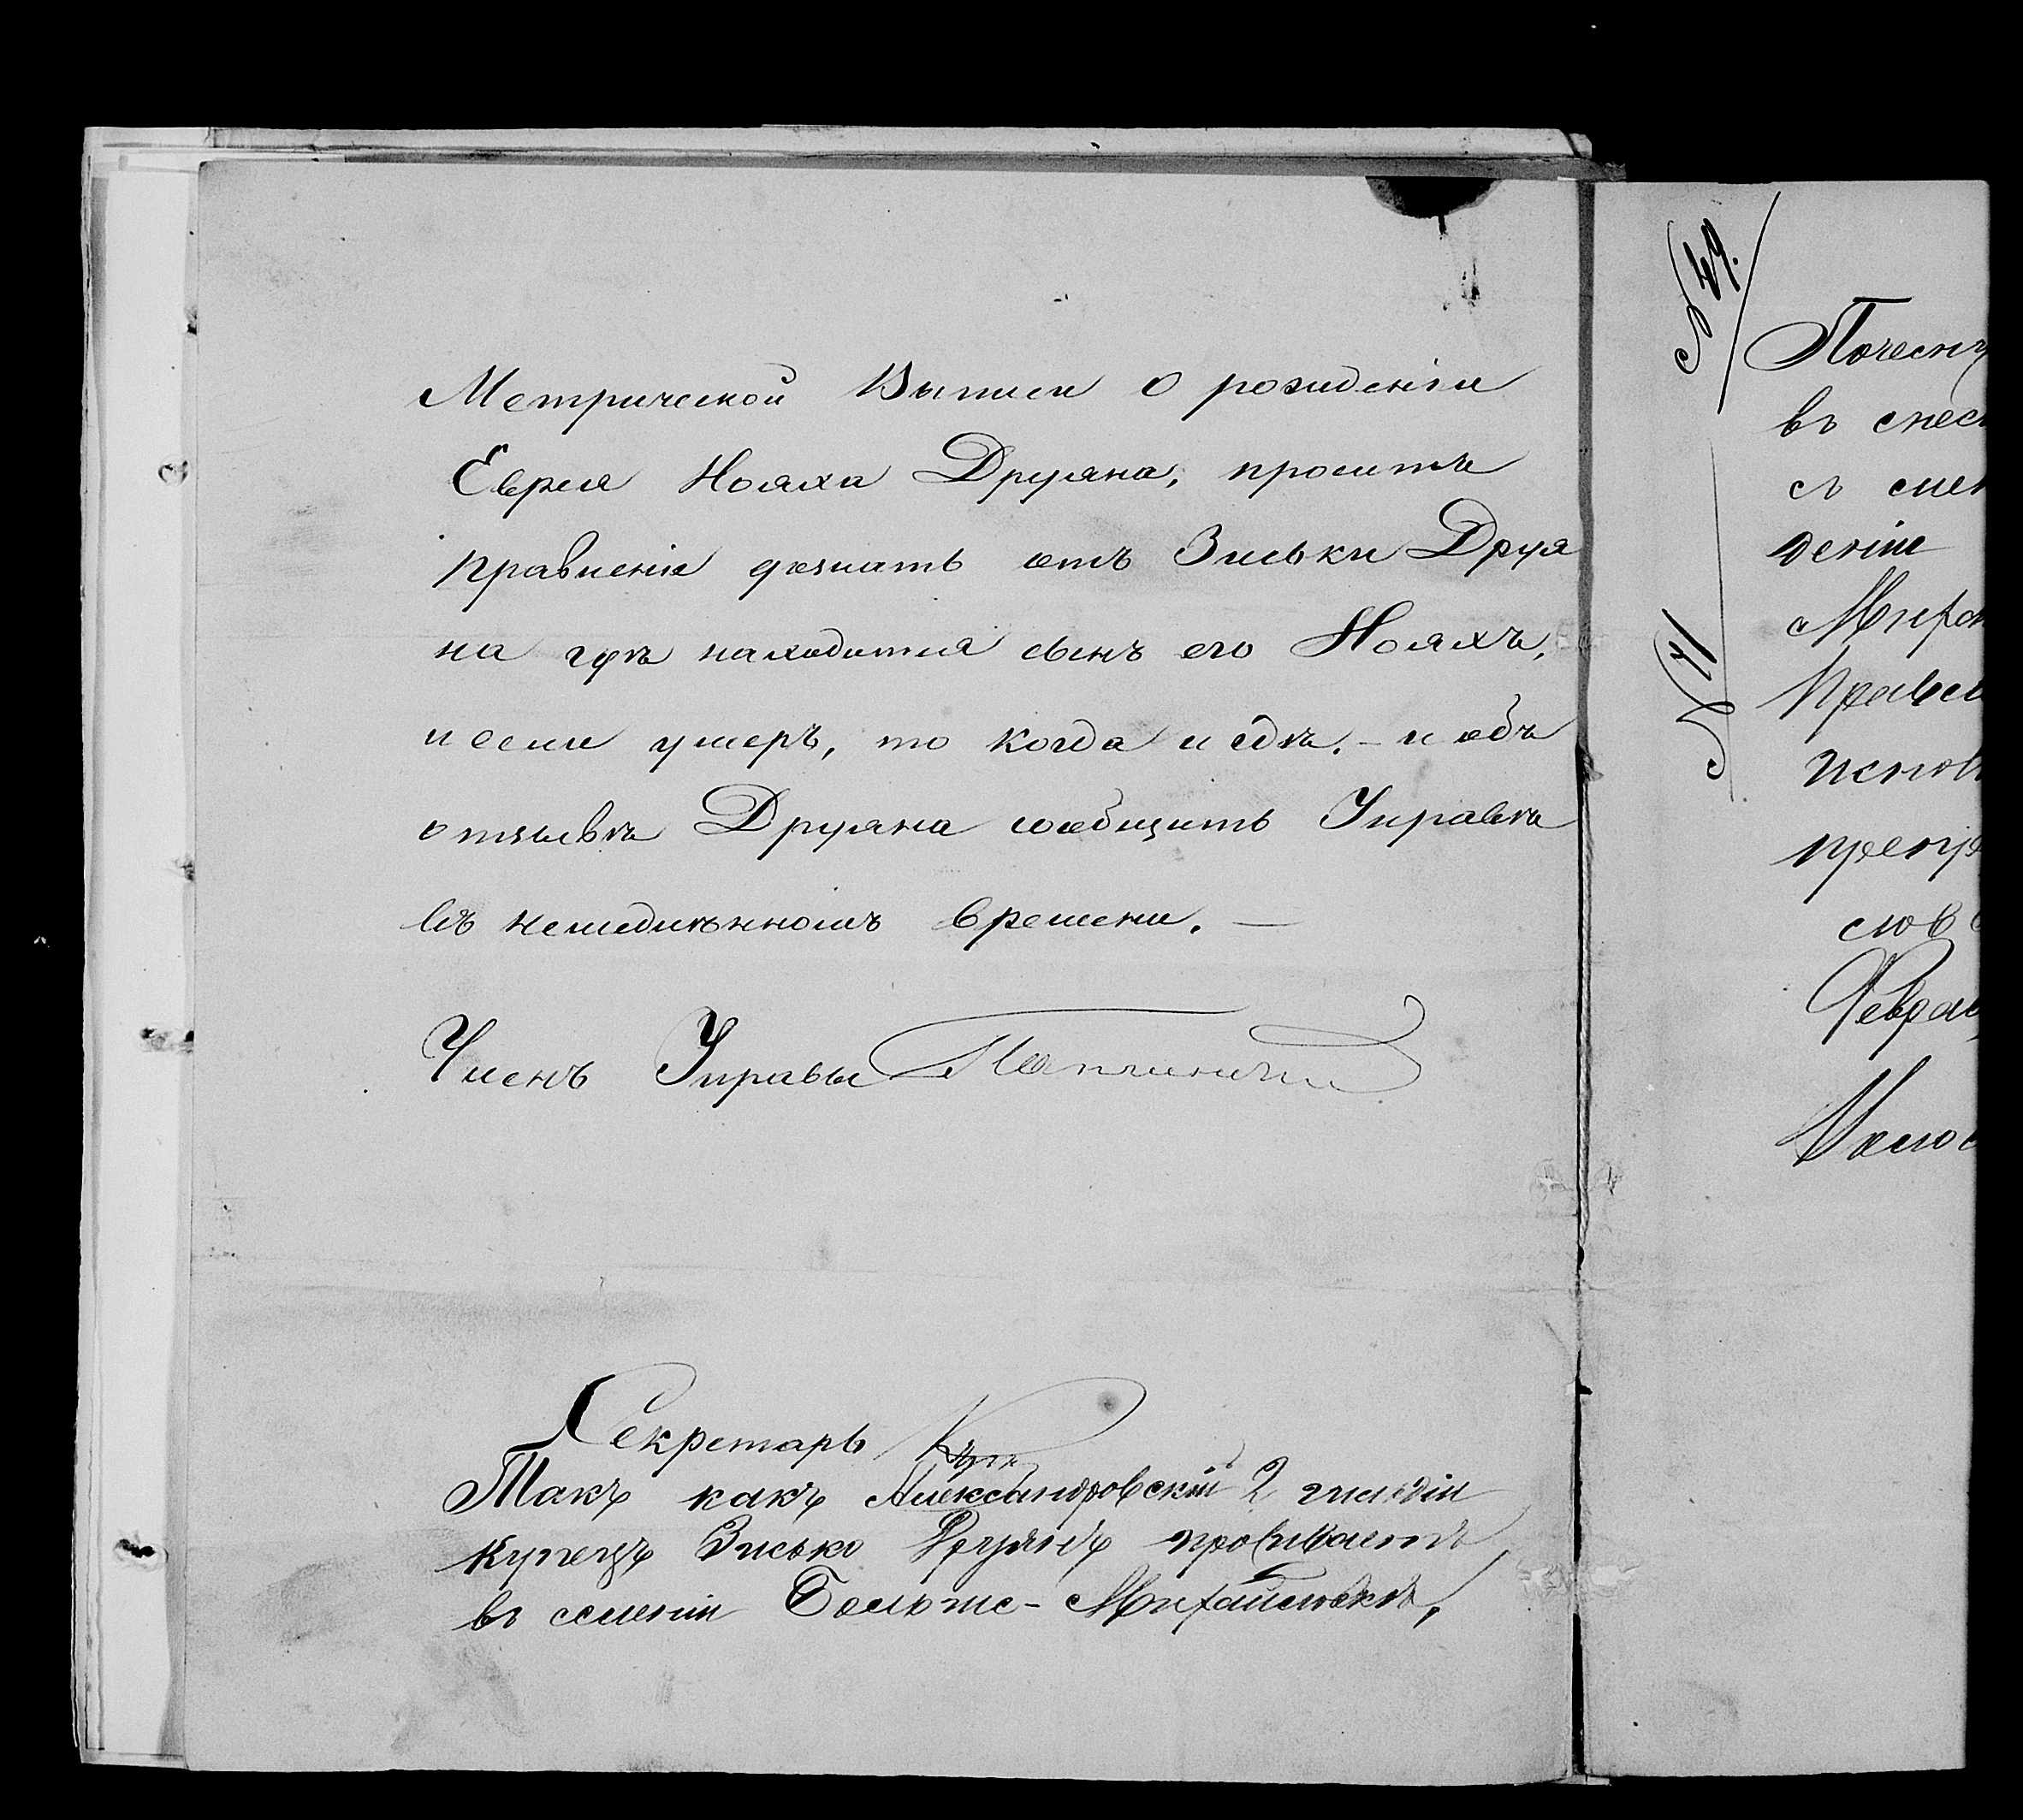 Метрической Выписи о рожденіи
Еврея Нояха Друяна, проситъ
правленіе дознать отъ Зиськи Друя
на гдѣ находится сынъ его Нояхъ,
и если умеръ, то когда и гдѣ. – и объ
отзывѣ Друяна сообщить Управѣ
въ немедлѣнномъ времени. —
Членъ Управы
Секретарь
Такъ какъ Александровскій 2 гильдіи
купецъ Зисько Друянъ проживаетъ
въ селеніи Больше-Михайловкѣ,
№ 49.
№ 41
Почему
въ
съ
деніе
Михай
Правл
Февра
Волос